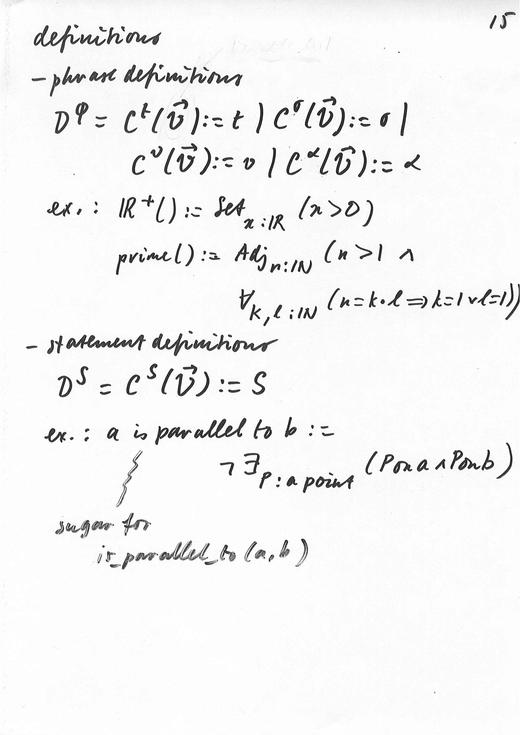 15
definitions
- phrase definitions
D^φ = C^t(V⃗) := t | C^σ(V⃗) := σ |
C^ν(V⃗) := ν | C^α(V⃗) := α
ex. : IR⁺() := Set_{x:IR} (x>0)
prime() := Adj_{n:IN} (n>1 ∧
∀_{k,l:IN} (n=k∙l ⇒ k=1 ∨ l=1))
- statement definitions
D^S = C^S(V⃗) := S
ex. : a is parallel to b :=
¬ ∃_{P : a point} (P on a ∧ P on b)
sugar for
is_parallel_to (a, b)